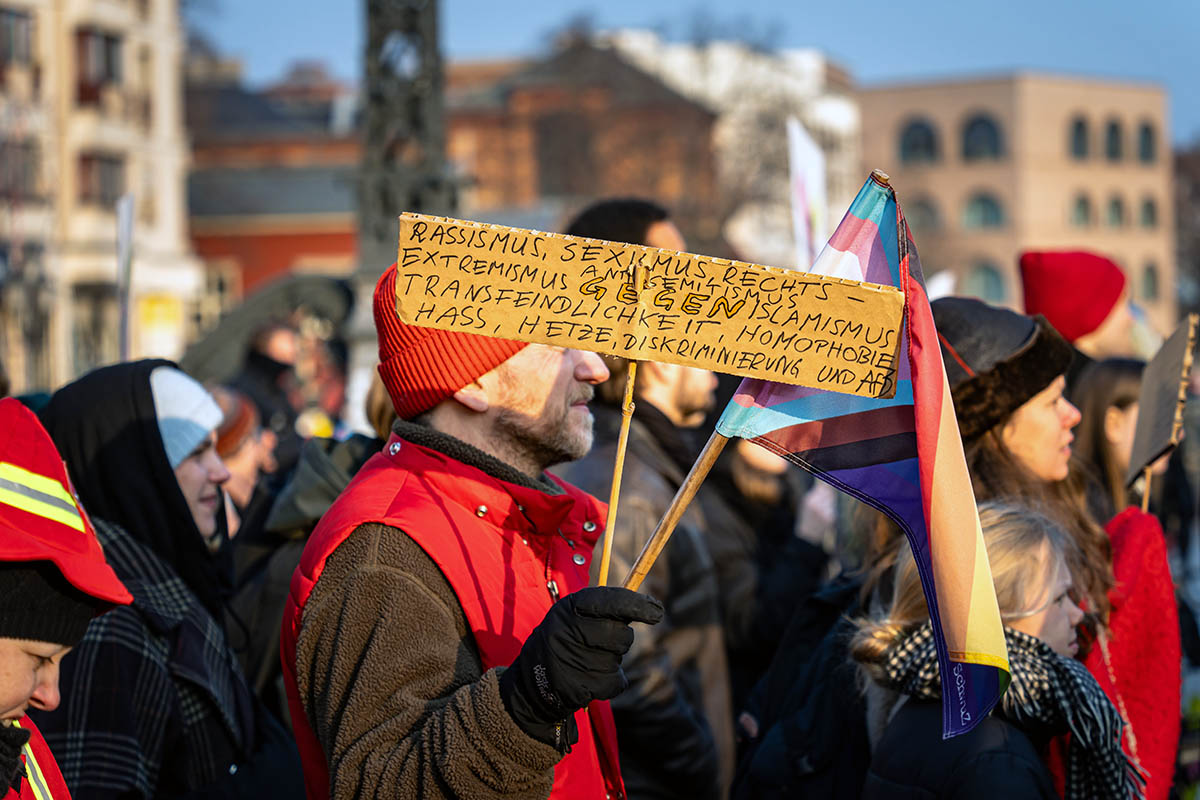 RASSISMUS, SEXISMUS, RECHTS-
EXTREMISMUS ANTISEMITISMUS
GEGEN ISLAMISMUS
TRANSFEINDLICHKEIT, HOMOPHOBIE
HASS, HETZE, DISKRIMINIERUNG UND AFD